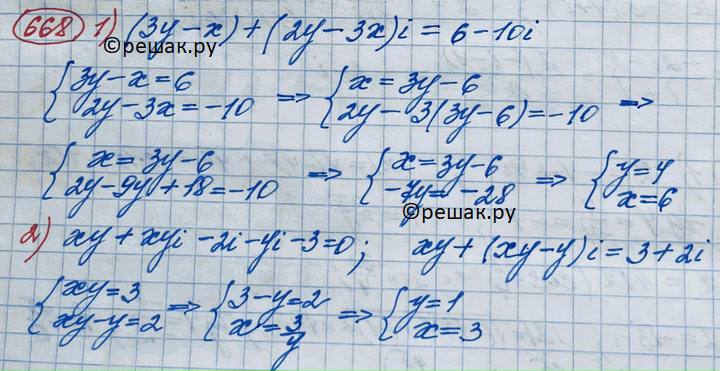 668 1) (3y-x)+(2y-3x)i=6-10i
©решак.ру
{3y-x=6 2y-3x=-10 => {x=3y-6 2y-3(3y-6)=-10 =>
{x=3y-6 2y-9y+18=-10 => {x=3y-6 -7y=-28 => {y=4 x=6
©решак.ру
2) xy+xyi-2i-yi-3=0; xy+(xy-y)i=3+2i
{xy=3 xy-y=2 => {3-y=2 x=3/y => {y=1 x=3